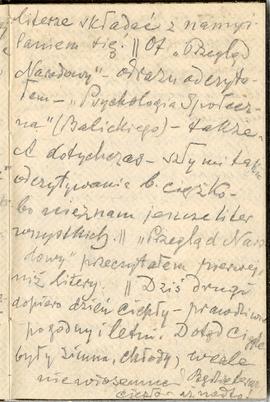 literze składać z namy-
słaniem się. || Ot „Przegląd
Narodowy" – odrazu odczyta-
łem – „Psychologia Społecz-
na" (Balickiego) – także.
A dotychczas – szły mi takie
odczytywania b. ciężko
bo nie znam jeszcze liter
wszystkich. || „Przegląd Naro-
dowy" przeczytałem pierwej
niż litery. || Dziś drugi
dopiero dzień ciepły – prawdziwie
pogodny i letni. Dotąd ciągle
były zimna, chłody, wcale
nie wiosenne